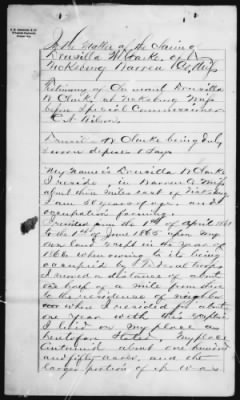 In the Matter of the Claim of
Drusilla W Clarke, of
Vicksburg Warren Co, Miss
Testimony of Claimant Drusilla
W Clarke, at Vicksburg Miss
before Special Commissioner
C. A. Wilson.
W Clarke being duly
sworn deposes & says
My Name is Drusilla W Clarke
I reside, in Warren Co Miss
about miles east of Vicksburg
I am 50 years of age, and
occupation farming.
I resided from the 1st of April 1861
to the 1st of June 1865 upon my
own land except in the year of
when owing to its being
occupied by Federal troops
I moved a distance of about
one half of a mile from there
to the residence of neighbor
when I resided for about
one year with this exception
I lived on My place as
heretofore Stated. My place
contained about one hundred
and fifty acres, and the
larger portion of it was